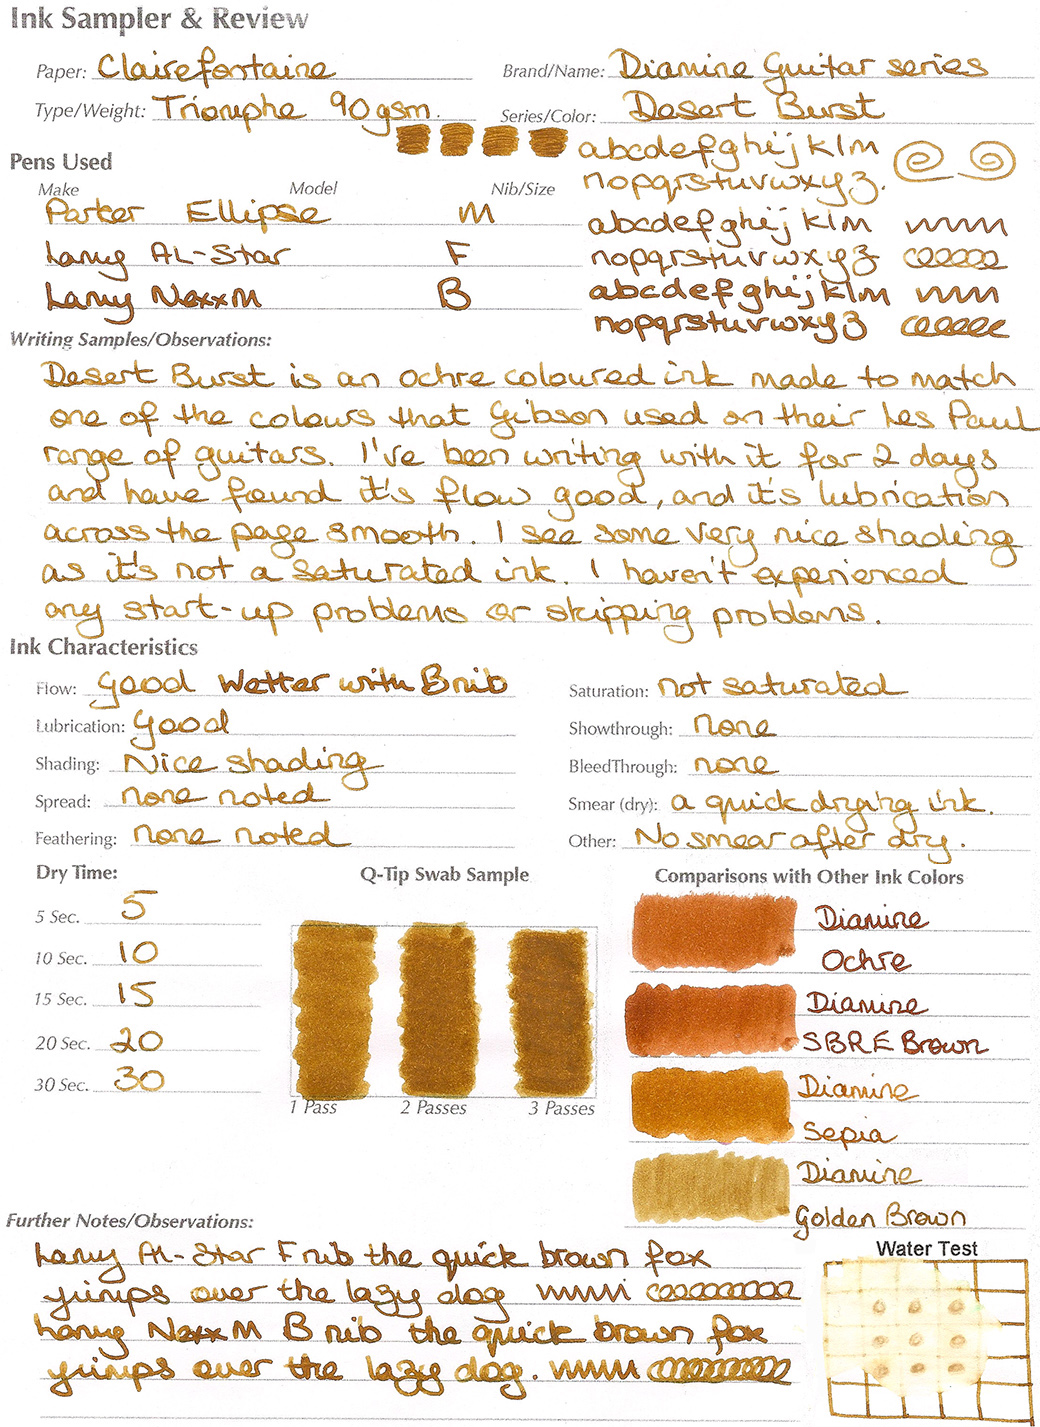 Ink Sampler & Review
Paper: Clairefontaine
Brand/Name: Diamine Guitar series
Type/Weight: Triomphe 90gsm.
Series/Color: Desert Burst
abcdefghijklm
nopqrstuvwxyz.
Pens Used
Make Model Nib/Size
Parker Ellipse M
abcdefghijklm
Lamy AL-Star F
nopqrstuvwxyz
Lamy Nexx M B
abcdefghijklm
nopqrstuvwxyz
Writing Samples/Observations:
Desert Burst is an ochre coloured ink made to match
one of the colours that Gibson used on their Les Paul
range of guitars. I've been writing with it for 2 days
and have found it's flow good, and it's lubrication
across the page smooth. I see some very nice shading
as it's not a saturated ink. I haven't experienced
any start-up problems or skipping problems.
Ink Characteristics
Flow: Good Wetter with B nib
Saturation: not saturated
Lubrication: Good
Showthrough: none
Shading: Nice shading
BleedThrough: none
Spread: none noted
Smear (dry): a quick drying ink.
Feathering: none noted
Other: No smear after dry.
Dry Time:
5 Sec. 5
10 Sec. 10
15 Sec. 15
20 Sec. 20
30 Sec. 30
Q-Tip Swab Sample
1 Pass 2 Passes 3 Passes
Comparisons with Other Ink Colors
Diamine
Ochre
Diamine
SBRE Brown
Diamine
Sepia
Diamine
Golden Brown
Further Notes/Observations:
Lamy AL-Star F nib the quick brown fox
jumps over the lazy dog
Lamy Nexx M B nib the quick brown fox
jumps over the lazy dog.
Water Test